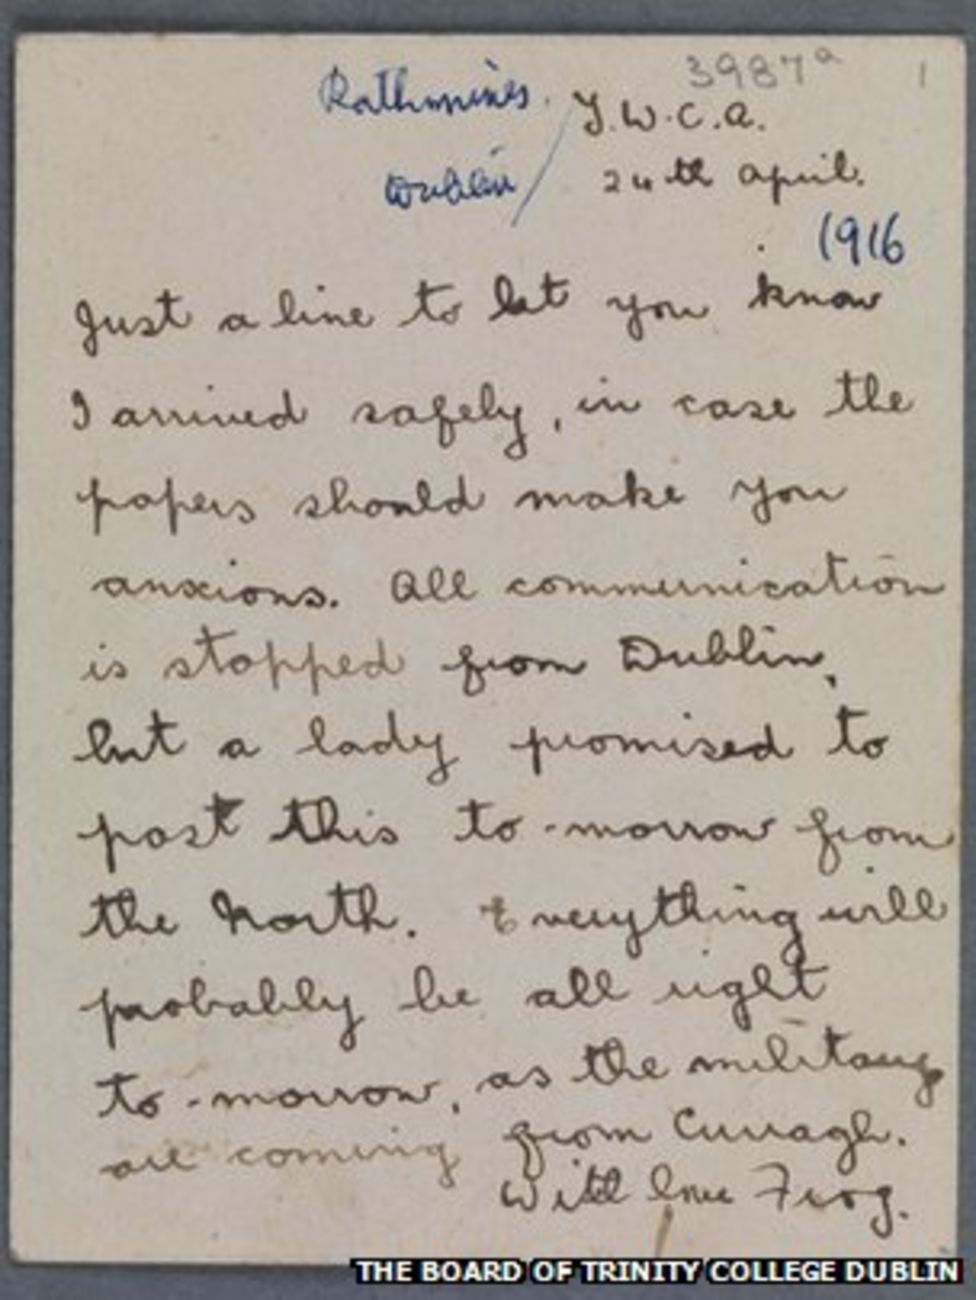 3987a 1
Rathmines. Y.W.C.A.
Dublin / 24th April.
1916
Just a line to let you know
I arrived safely, in case the
papers should make you
anxious. All communication
is stopped from Dublin,
but a lady promised to
post this to-morrow from
the North. Everything will
probably be all right
to-morrow, as the military
are coming from Curragh.
With love Frog.
THE BOARD OF TRINITY COLLEGE DUBLIN